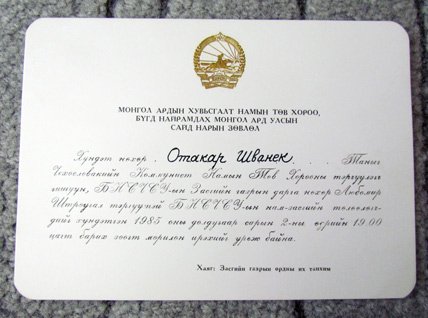 МОНГОЛ АРДЫН ХУВЬСГАЛТ НАМЫН ТӨВ ХОРОО,
БҮГД НАЙРАМДАХ МОНГОЛ АРД УЛСЫН
САЙД НАРЫН ЗӨВЛӨЛ
Хүндэт нөхөр . Отакар Шванек. . . Таныг
Чехословакийн Коммунист Намын Төв Хорооны тэргүүлэгч
гишүүн, БНСЧСУ-ын Засгийн газрын дарга нөхөр Любомир
Штроугал тэргүүтэй БНСЧСУ-ын нам-засгийн төлөөлөгч-
дийг хүндэтгэн 1985 оны долдугаар сарын 2-ны өдрийн 19.00
цагт барих зоогт морилон ирэхийг урьж байна.
Хаяг: Засгийн газрын ордны их танхим